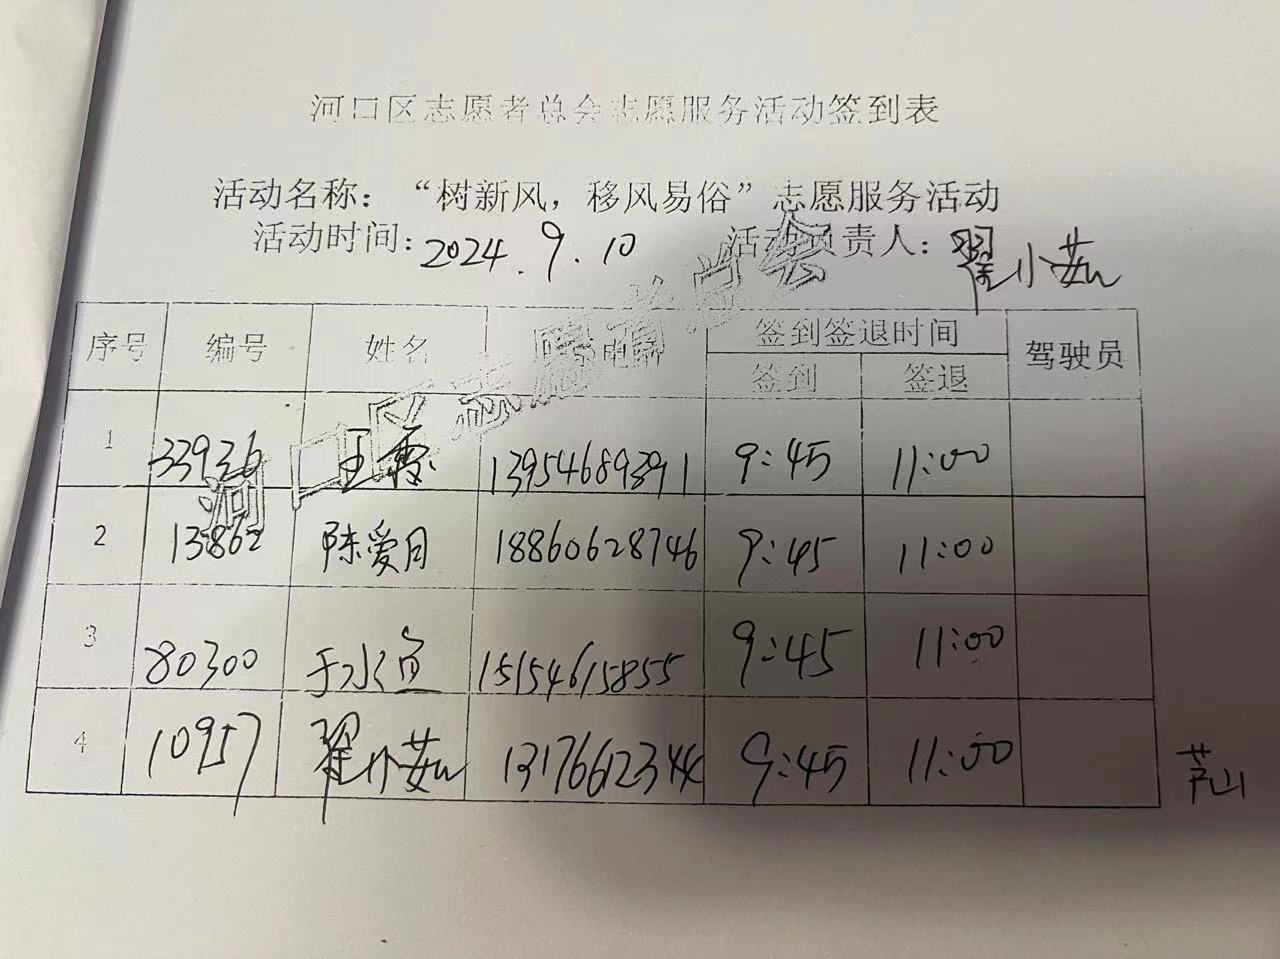 河口区志愿者总会志愿服务活动签到表
活动名称：“树新风，移风易俗”志愿服务活动
活动时间：2024.9.10 活动负责人：翟小茹
河口区志愿者总会
序号 编号 姓名 电话 签到签退时间 驾驶员
签到 签退
1 33936 王霞 13954689391 9:45 11:00
2 13862 陈爱月 18860628746 9:45 11:00
3 80300 于水 15154615855 9:45 11:00
4 10957 翟小茹 13176612344 9:45 11:00